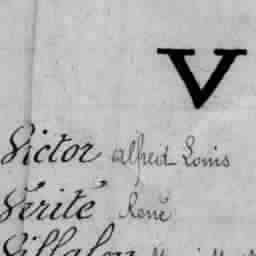 V
Victor Alfred Louis
Vérité René
Villalon